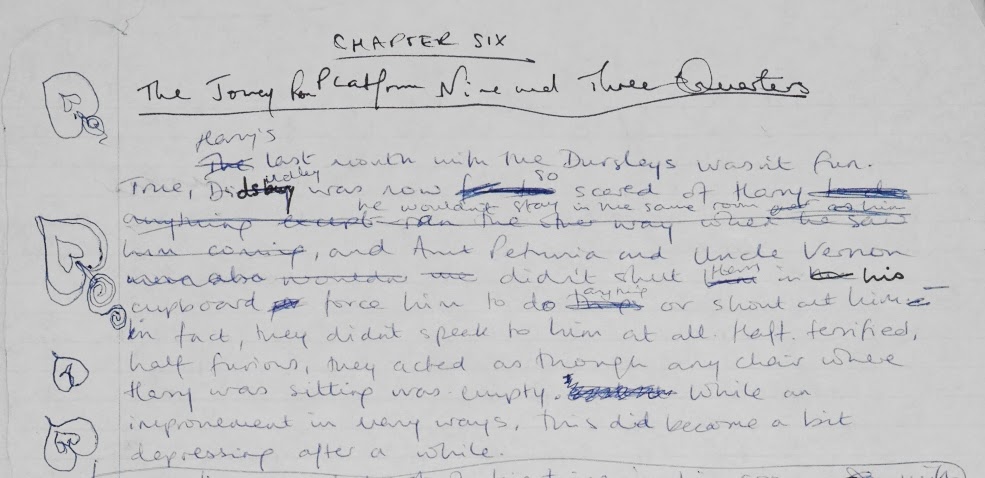 CHAPTER SIX
The Jorney from Platform Nine and Three Quarters
Harry's
The last month with the Dursleys wasn't fun.
True, Didsbury Dudley was now so scared of Harry
he wouldn't stay in the same room as him
anything except run the other way when he saw
him coming, and Aunt Petunia and Uncle Vernon
were also wouldn didn't shut Harry in his
cupboard force him to do things anything or shout at him –
in fact, they didn't speak to him at all. Half terrified,
half furious, they acted as though any chair where
Harry was sitting was empty. While an
improvement in many ways, this did become a bit
depressing after a while.